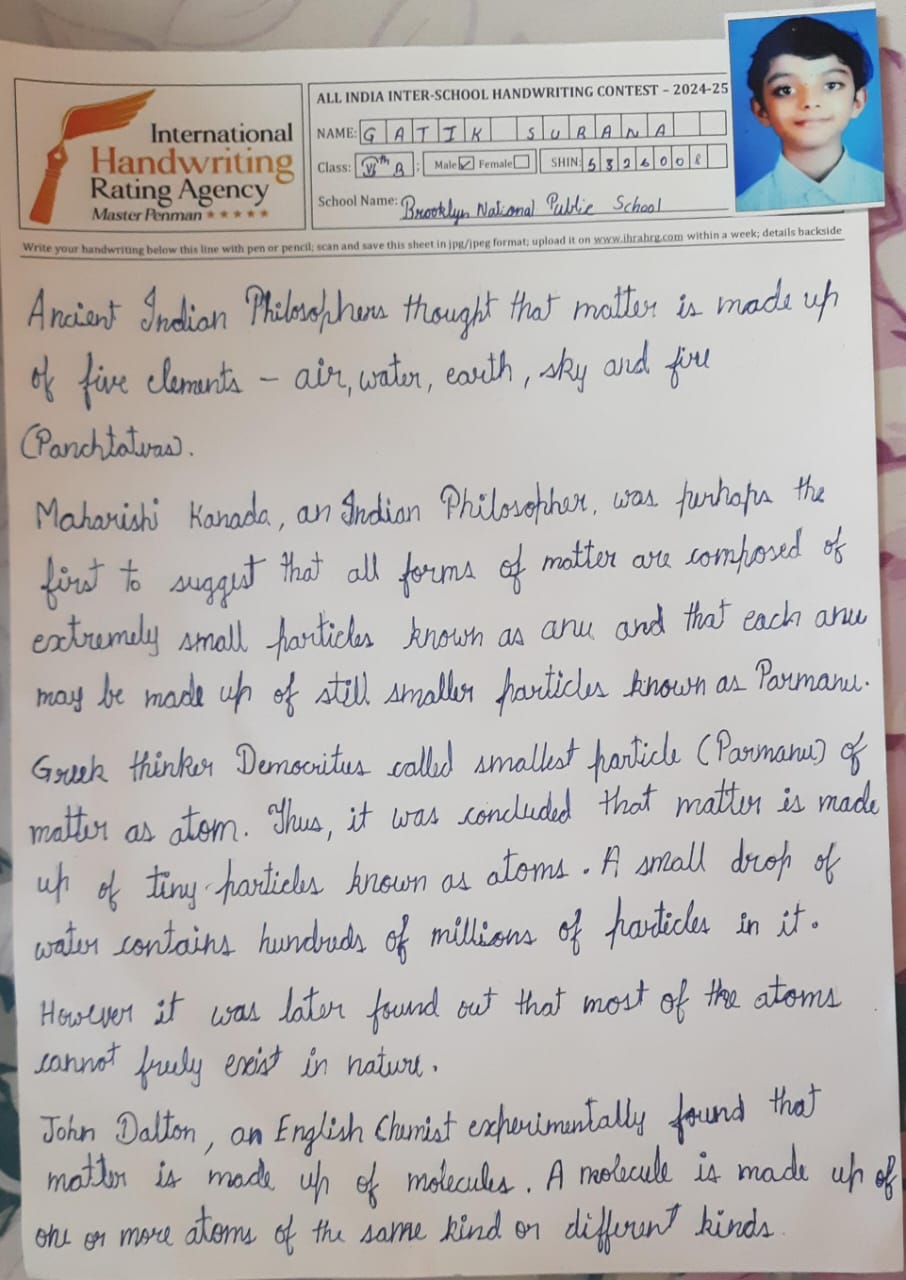 International
Handwriting
Rating Agency
Master Penman ★★★★★
ALL INDIA INTER-SCHOOL HANDWRITING CONTEST – 2024-25
NAME: GATIK SURANA
Class: VIth B : Male ☑ Female ☐ SHIN: 5326008
School Name: Brooklyn National Public School
Write your handwriting below this line with pen or pencil; scan and save this sheet in jpg/jpeg format; upload it on www.ihrahrg.com within a week; details backside
Ancient Indian Philosophers thought that matter is made up
of five elements – air, water, earth, sky and fire
(Panchtatvas).
Maharishi Kanada, an Indian Philosopher, was perhaps the
first to suggest that all forms of matter are composed of
extremely small particles known as anu and that each anu
may be made up of still smaller particles known as Parmanu.
Greek thinker Democritus called smallest particle (Parmanu) of
matter as atom. Thus, it was concluded that matter is made
up of tiny particles known as atoms. A small drop of
water contains hundreds of millions of particles in it.
However it was later found out that most of the atoms
cannot freely exist in nature.
John Dalton, an English Chemist experimentally found that
matter is made up of molecules. A molecule is made up of
one or more atoms of the same kind or different kinds.